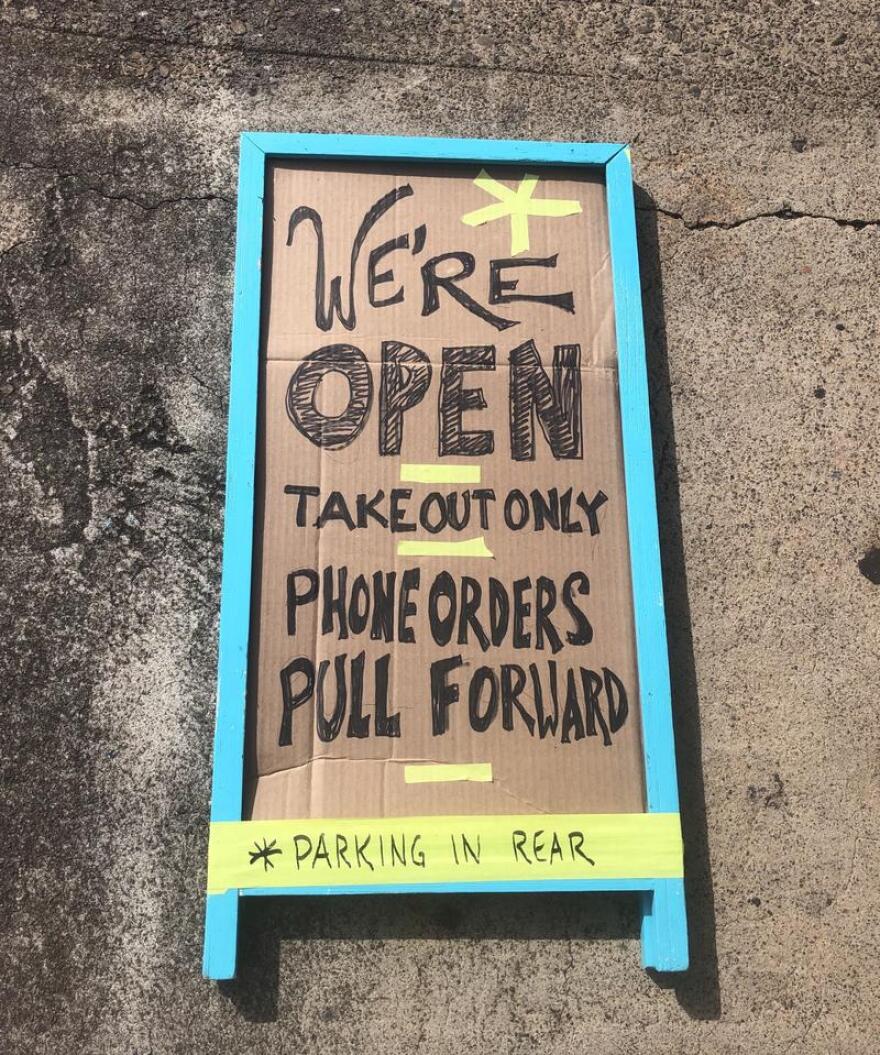 WE'RE
OPEN
TAKE OUT ONLY
PHONE ORDERS
PULL FORWARD
* PARKING IN REAR